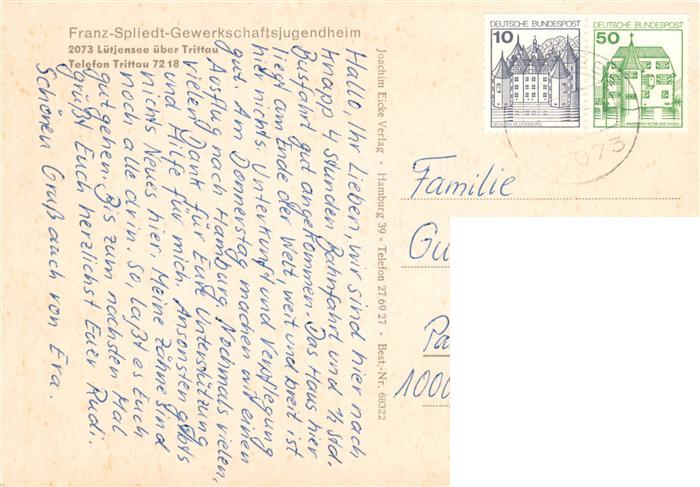 Franz-Spliedt-Gewerkschaftsjugendheim
2073 Lütjensee über Trittau
Telefon Trittau 72 18
Hallo Ihr Lieben, wir sind hier nach
knapp 4 Stunden Bahnfahrt und ½ Std.
Busfahrt gut angekommen. Das Haus hier
liegt am Ende der Welt, weit und breit ist
hier nichts. Unterkunft und Verpflegung
gut. Am Donnerstag machen wir einen
Ausflug nach Hamburg. Nochmals vielen,
vielen Dank für Eure Unterstützung
und Hilfe für mich. Ansonsten gibts
nichts Neues hier. Meine Zähne sind
noch alle drin. So, laßt es Euch
gut gehen. Bis zum nächsten Mal
grüßt Euch herzlichst Euer Rudi.
Schönen Gruß auch von Eva.
Joachim Eicke Verlag - Hamburg 39 - Telefon 27 69 27 - Best.-Nr. 68322
DEUTSCHE BUNDESPOST
10
SCHLOSS GLÜCKSBURG
DEUTSCHE BUNDESPOST
50
WASSERSCHLOSS INZLINGEN
2073
Familie
Gu
Pa
1000